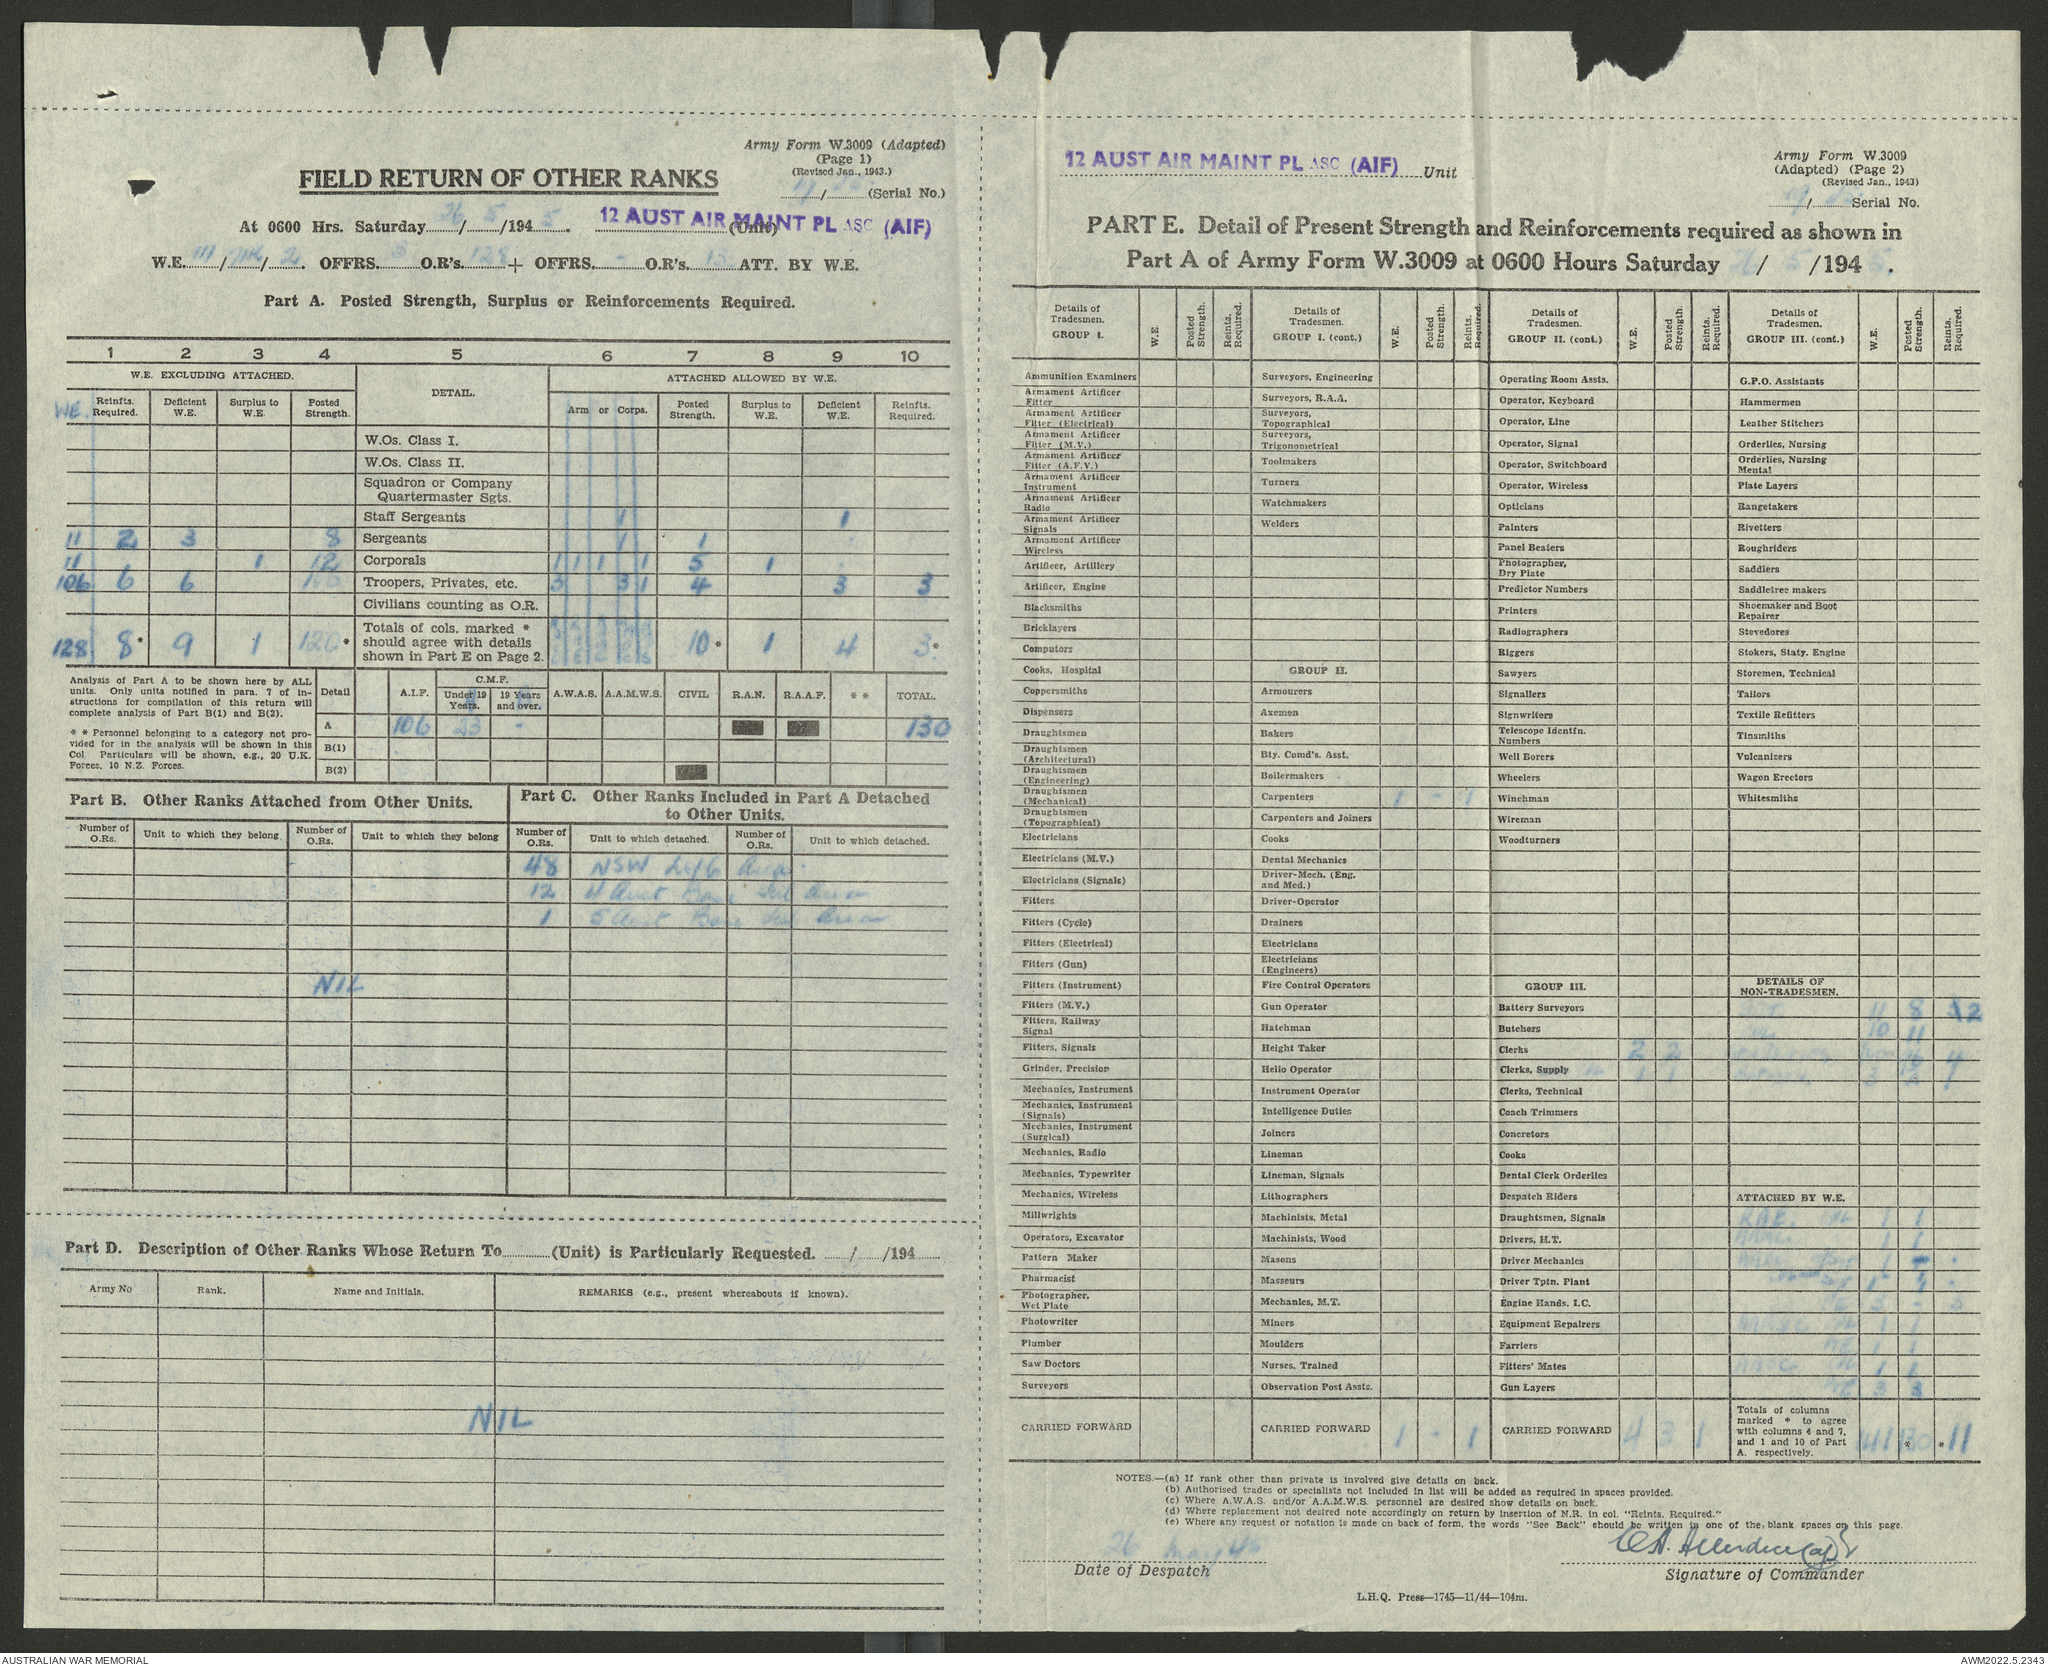 Army Form W.3009 (Adapted)
(Page 1)
(Revised Jan., 1943.)
FIELD RETURN OF OTHER RANKS
/ (Serial No.)
At 0600 Hrs. Saturday 26/5/1945. 12 AUST AIR MAINT PL ASC (AIF) (Unit)
W.E. 111/ /2. OFFRS. 3 O.R's. 128 + OFFRS. - O.R's. 13 ATT. BY W.E.
Part A. Posted Strength, Surplus or Reinforcements Required.
1 2 3 4 5 6 7 8 9 10
W.E. EXCLUDING ATTACHED. DETAIL. ATTACHED ALLOWED BY W.E.
WE. Reinfts. Required. Deficient W.E. Surplus to W.E. Posted Strength. Arm or Corps. Posted Strength. Surplus to W.E. Deficient W.E. Reinfts. Required.
W.Os. Class I.
W.Os. Class II.
Squadron or Company
Quartermaster Sgts.
Staff Sergeants 1 1
11 2 3 8 Sergeants 1 1
11 1 12 Corporals 1 1 1 1 5 1
106 6 6 100 Troopers, Privates, etc. 3 3 1 4 3 3
Civilians counting as O.R.
Totals of cols. marked *
should agree with details
shown in Part E on Page 2.
128 8* 9 1 120* 10* 1 4 3*
Analysis of Part A to be shown here by ALL
units. Only units notified in para. 7 of in-
structions for compilation of this return will
complete analysis of Part B(1) and B(2).
* * Personnel belonging to a category not pro-
vided for in the analysis will be shown in this
Col. Particulars will be shown, e.g., 20 U.K.
Forces, 10 N.Z. Forces.
Detail A.I.F. C.M.F. Under 19 Years. 19 Years and over. A.W.A.S. A.A.M.W.S. CIVIL R.A.N. R.A.A.F. * * TOTAL.
A 106 23 - 130
B(1)
B(2)
Part B. Other Ranks Attached from Other Units.
Number of O.Rs. Unit to which they belong Number of O.Rs. Unit to which they belong
NIL
Part C. Other Ranks Included in Part A Detached
to Other Units.
Number of O.Rs. Unit to which detached. Number of O.Rs. Unit to which detached.
48 NSW L of C Area
12 4 Aust Base Sub Area
1 5 Aust Base Sub Area
Part D. Description of Other Ranks Whose Return To (Unit) is Particularly Requested. / /194
Army No Rank. Name and Initials. REMARKS (e.g., present whereabouts if known).
NIL
12 AUST AIR MAINT PL ASC (AIF) Unit
Army Form W.3009
(Adapted) (Page 2)
(Revised Jan., 1943)
/ Serial No.
PART E. Detail of Present Strength and Reinforcements required as shown in
Part A of Army Form W.3009 at 0600 Hours Saturday 26/5/1945.
Details of Tradesmen. GROUP I. W.E. Posted Strength. Reints. Required.
Ammunition Examiners
Armament Artificer Fitter
Armament Artificer Fitter (Electrical)
Armament Artificer Fitter (M.V.)
Armament Artificer Fitter (A.F.V.)
Armament Artificer Instrument
Armament Artificer Radio
Armament Artificer Signals
Armament Artificer Wireless
Artificer, Artillery
Artificer, Engine
Blacksmiths
Bricklayers
Computors
Cooks, Hospital
Coppersmiths
Dispensers
Draughtsmen
Draughtsmen (Architectural)
Draughtsmen (Engineering)
Draughtsmen (Mechanical)
Draughtsmen (Topographical)
Electricians
Electricians (M.V.)
Electricians (Signals)
Fitters
Fitters (Cycle)
Fitters (Electrical)
Fitters (Gun)
Fitters (Instrument)
Fitters (M.V.)
Fitters, Railway Signal
Fitters, Signals
Grinder, Precision
Mechanics, Instrument
Mechanics, Instrument (Signals)
Mechanics, Instrument (Surgical)
Mechanics, Radio
Mechanics, Typewriter
Mechanics, Wireless
Millwrights
Operators, Excavator
Pattern Maker
Pharmacist
Photographer, Wet Plate
Photowriter
Plumber
Saw Doctors
Surveyors
CARRIED FORWARD
Details of Tradesmen. GROUP I. (cont.) W.E. Posted Strength. Reints. Required.
Surveyors, Engineering
Surveyors, R.A.A.
Surveyors, Topographical
Surveyors, Trigonometrical
Toolmakers
Turners
Watchmakers
Welders
GROUP II.
Armourers
Axemen
Bakers
Bty. Comd's. Asst.
Boilermakers
Carpenters 1 - 1
Carpenters and Joiners
Cooks
Dental Mechanics
Driver-Mech. (Eng. and Med.)
Driver-Operator
Drainers
Electricians
Electricians (Engineers)
Fire Control Operators
Gun Operator
Hatchman
Height Taker
Helio Operator
Instrument Operator
Intelligence Duties
Joiners
Lineman
Lineman, Signals
Lithographers
Machinists, Metal
Machinists, Wood
Masons
Masseurs
Mechanics, M.T.
Miners
Moulders
Nurses, Trained
Observation Post Assts.
CARRIED FORWARD 1 - 1
Details of Tradesmen. GROUP II. (cont.) W.E. Posted Strength. Reints. Required.
Operating Room Assts.
Operator, Keyboard
Operator, Line
Operator, Signal
Operator, Switchboard
Operator, Wireless
Opticians
Painters
Panel Beaters
Photographer, Dry Plate
Predictor Numbers
Printers
Radiographers
Riggers
Sawyers
Signallers
Signwriters
Telescope Identfn. Numbers
Well Borers
Wheelers
Winchman
Wireman
Woodturners
GROUP III.
Battery Surveyors
Butchers
Clerks 2 2
Clerks, Supply 1 1
Clerks, Technical
Coach Trimmers
Concretors
Cooks
Dental Clerk Orderlies
Despatch Riders
Draughtsmen, Signals
Drivers, H.T.
Driver Mechanics
Driver Tptn. Plant
Engine Hands, I.C.
Equipment Repairers
Farriers
Fitters' Mates
Gun Layers
CARRIED FORWARD 4 3 1
Details of Tradesmen. GROUP III. (cont.) W.E. Posted Strength. Reints. Required.
G.P.O. Assistants
Hammermen
Leather Stitchers
Orderlies, Nursing
Orderlies, Nursing Mental
Plate Layers
Rangetakers
Rivetters
Roughriders
Saddlers
Saddletree makers
Shoemaker and Boot Repairer
Stevedores
Stokers, Staty. Engine
Storemen, Technical
Tailors
Textile Refitters
Tinsmiths
Vulcanizers
Wagon Erectors
Whitesmiths
DETAILS OF NON-TRADESMEN.
11 8 2
10 11
4
ATTACHED BY W.E.
RAE. 1 1
1 1
1
3 - 3
1 1
1 1
1 1
3 3
Totals of columns
marked * to agree
with columns 4 and 7,
and 1 and 10 of Part
A. respectively.
141 130* *11
NOTES.—(a) If rank other than private is involved give details on back.
(b) Authorised trades or specialists not included in list will be added as required in spaces provided.
(c) Where A.W.A.S. and/or A.A.M.W.S. personnel are desired show details on back.
(d) Where replacement not desired note accordingly on return by insertion of N.R. in col. "Reints. Required."
(e) Where any request or notation is made on back of form, the words "See Back" should be written in one of the blank spaces on this page.
26 May 45
Date of Despatch
Signature of Commander
L.H.Q. Press—1745—11/44—104m.
AUSTRALIAN WAR MEMORIAL
AWM2022.5.2343